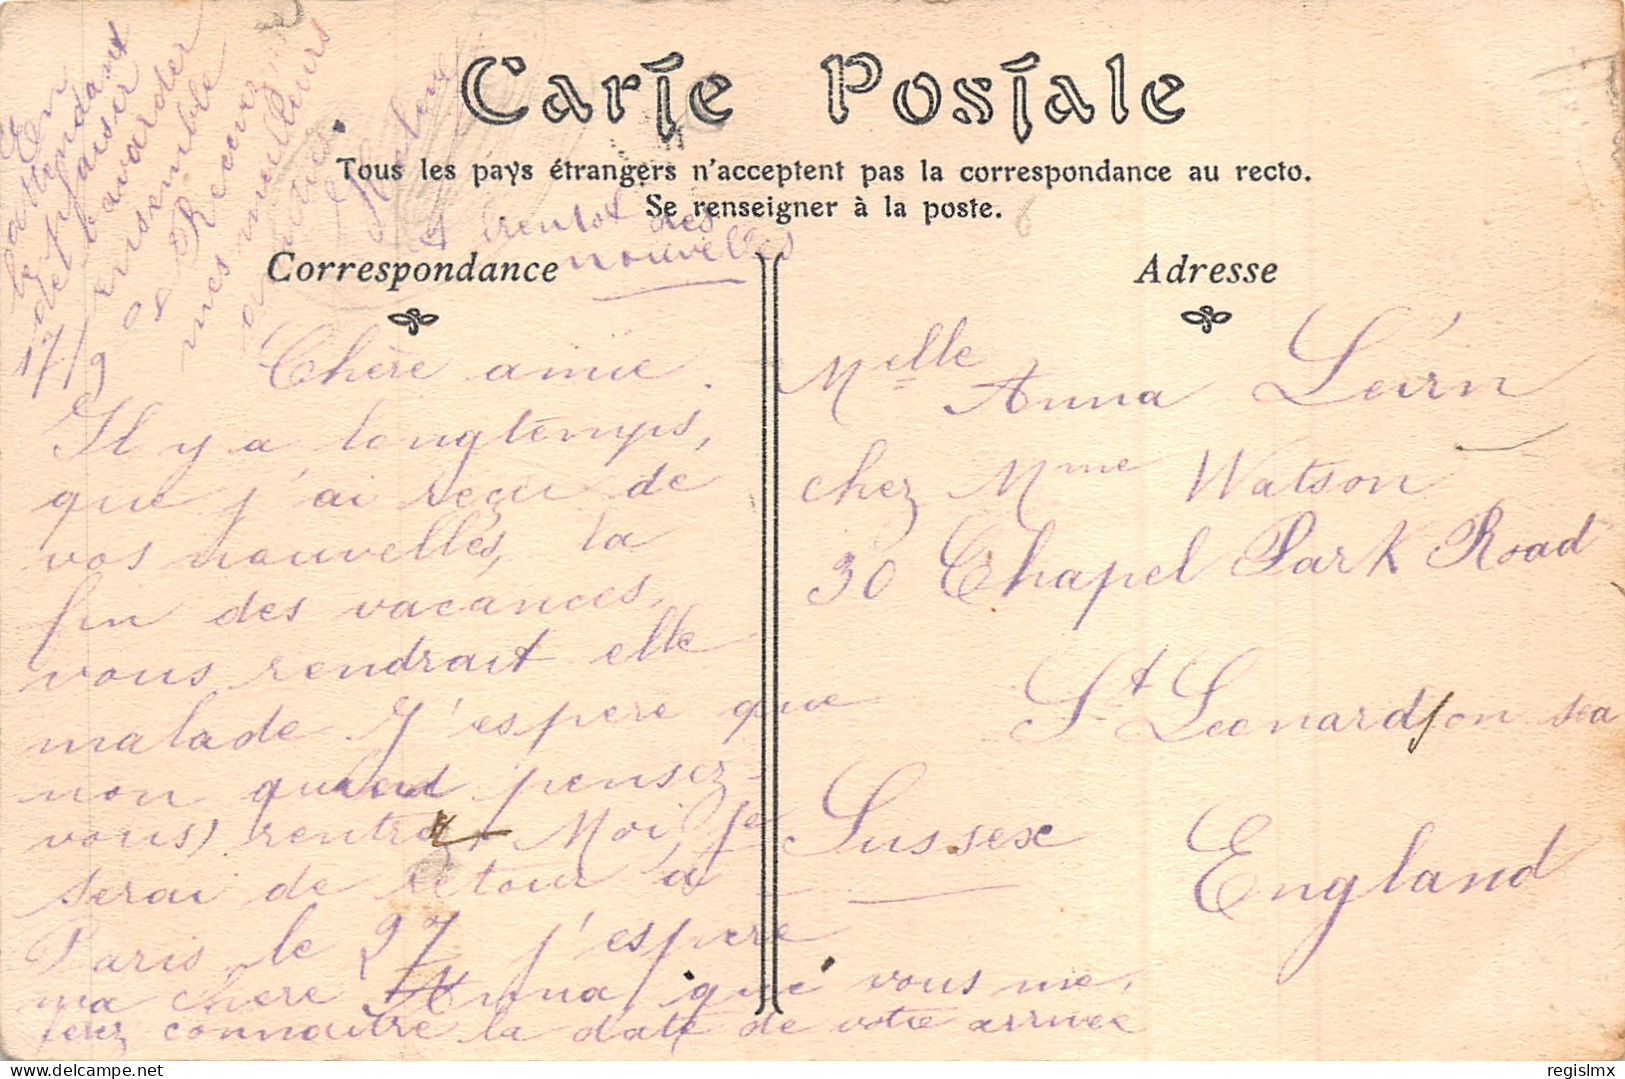 Carte Postale
Tous les pays étrangers n'acceptent pas la correspondance au recto.
Se renseigner à la poste.
Correspondance
Adresse
Chère amie
Il y a longtemps,
que j'ai reçu de
vos nouvelles, la
fin des vacances,
vous rendrait elle
malade. J'espere que
non quand pensez-
vous rentrez, Moi, je
serai de retour à
Paris le 27 j'espere
ma chere Anna, que vous me
ferez connaitre la date de votre arrivée
17/9
En
attendant
le plaisir
de bavarder
ensemble
Recevez
mes meilleurs
amitiés
à bientot des
nouvelles
Melle Anna
chez Mme Watson
30 Chapel Park Road
St Leonards/on sea
Sussex
England
regislmx
delcampe.net